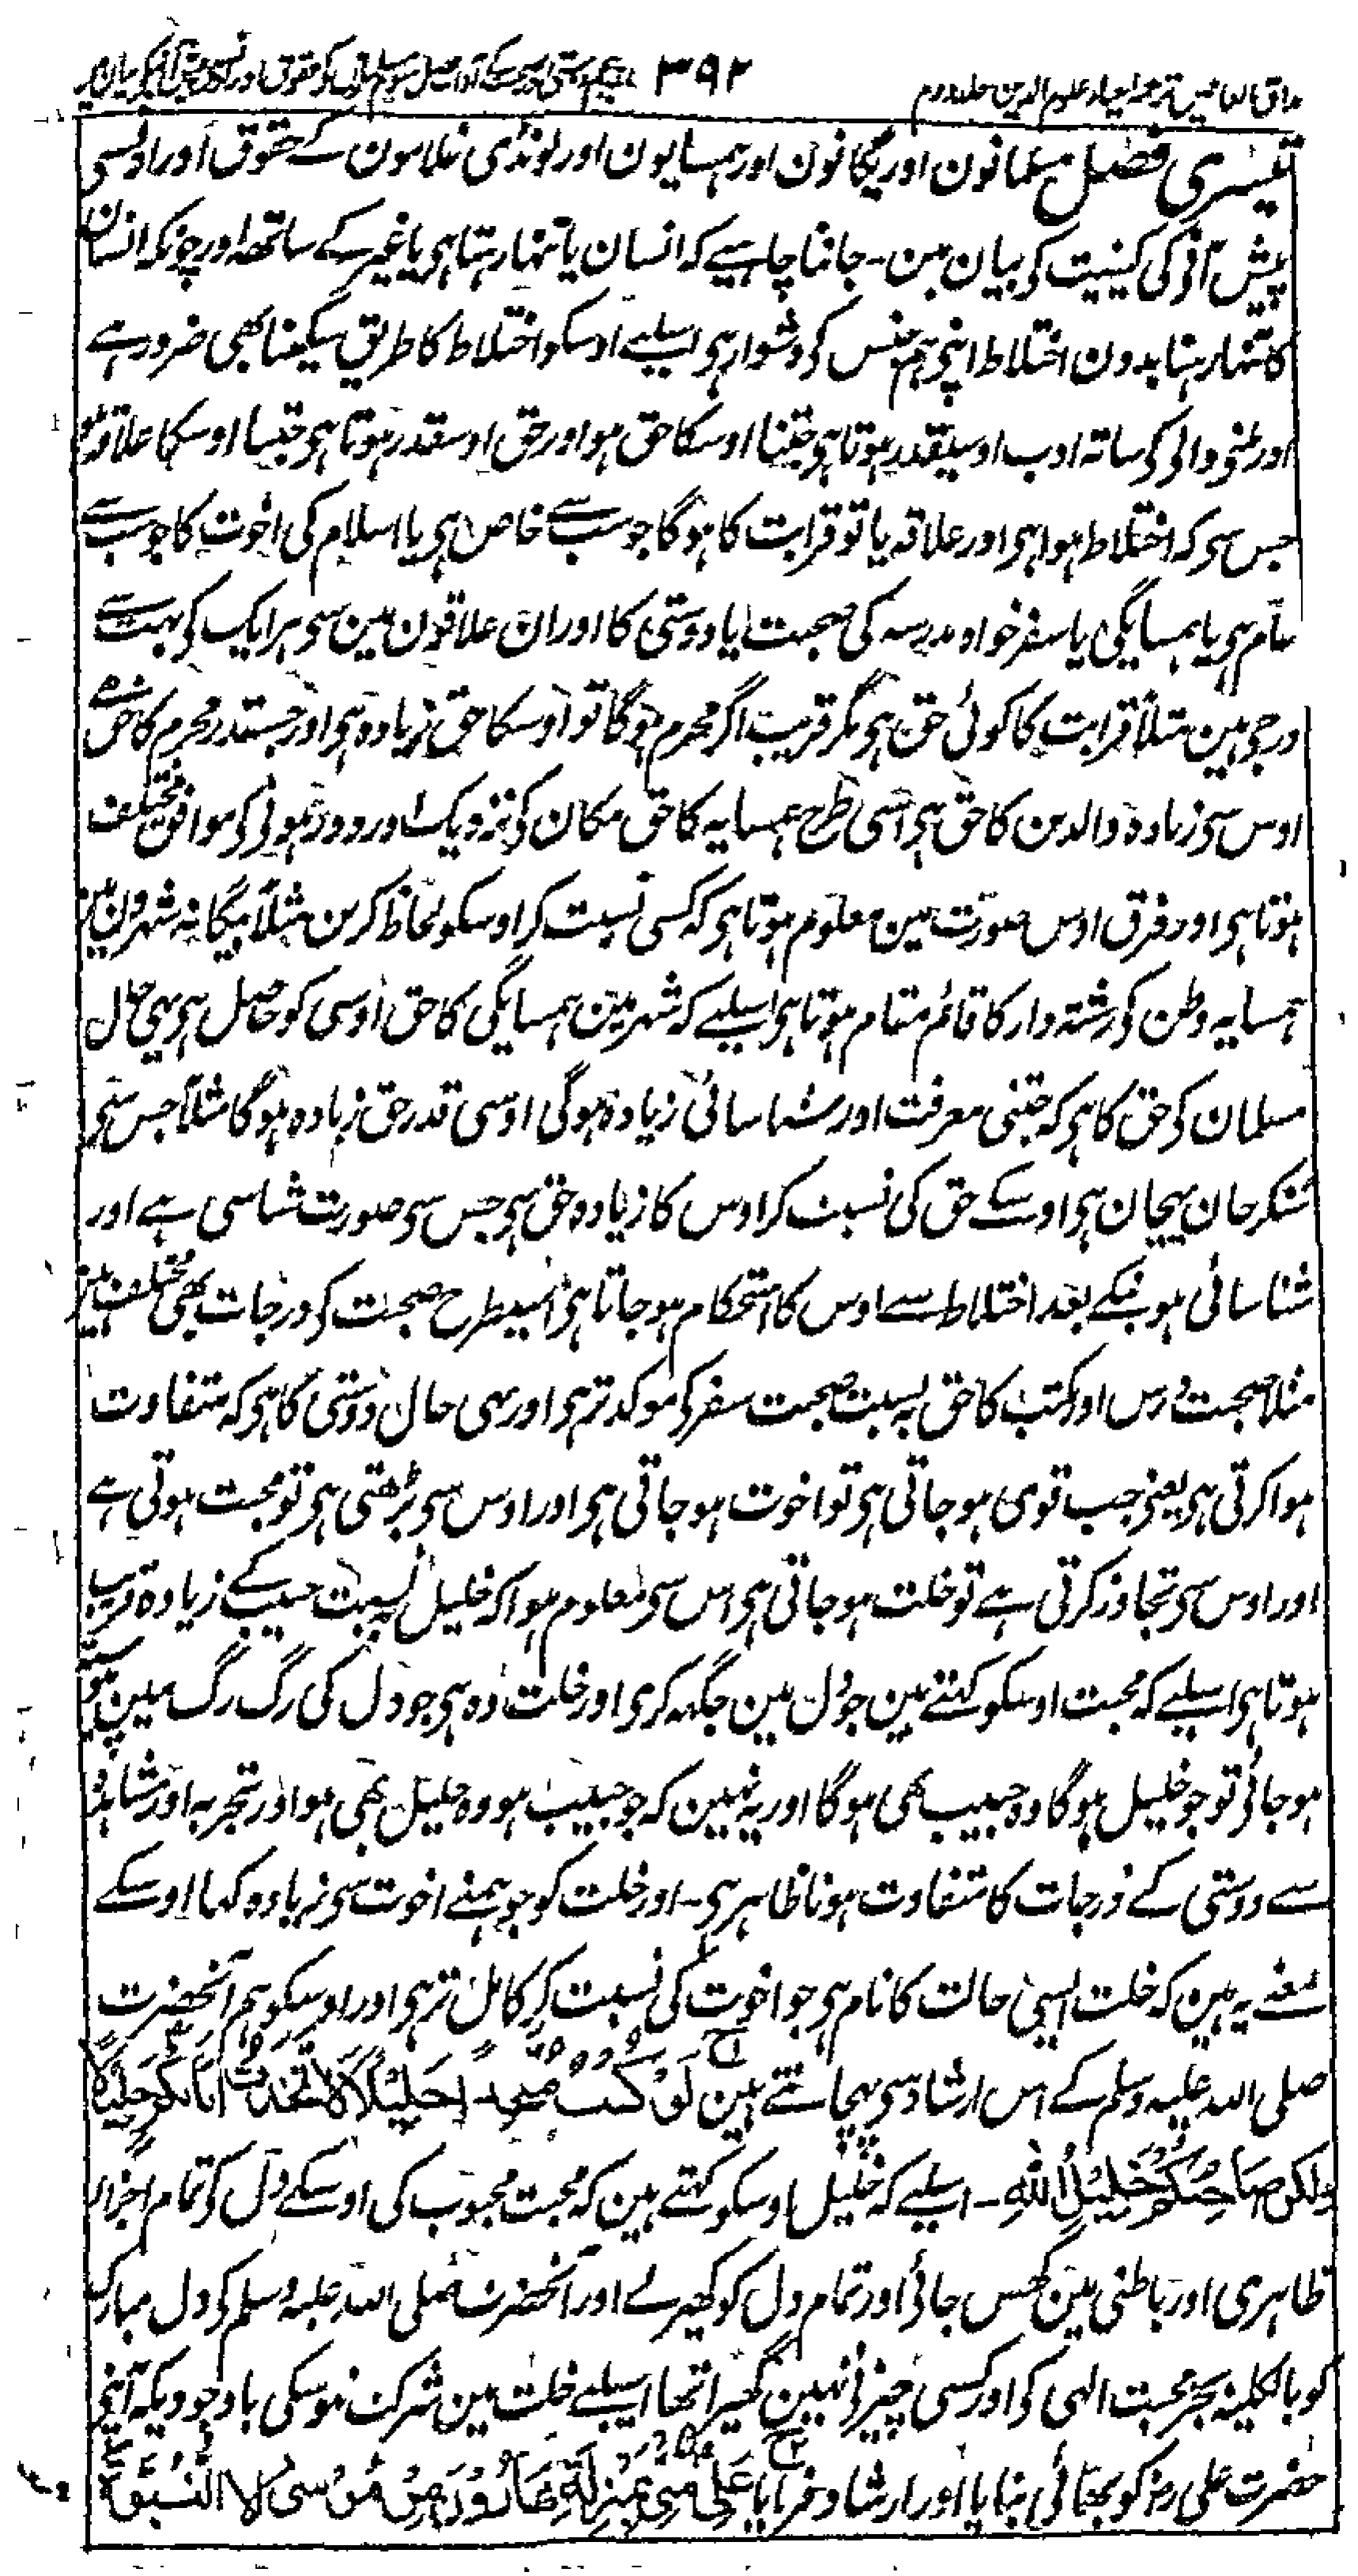 مذاق العارفین ترجمہ احیاء علوم الدین جلد دوم
۳۹۲
تیسری فصل مسلمانون اور یگانون اور ہمسایون اور لونڈی غلامون کے حقوق اور اونسی
پیش آنی کی کیفیت کی بیان مین۔ جاننا چاہیے کہ انسان یا تنہا رہتا ہی یا غیر کے ساتھ اور چونکہ انسان
کا تنہا رہنا بدون اختلاط اپنی ہم جنس کی دشوار ہی اسلیے اوسکو اختلاط کا طریق سیکھنا بھی ضرور ہے
اور ملنی والی کی ساتہ ادب اوسیقدر ہوتا ہی جتنا اوسکا حق ہو اور حق اوسقدر ہوتا ہی جیسا اوسکا علاقہ ہو
جس سی کہ اختلاط ہوا ہی اور علاقہ یا تو قرابت کا ہوگا جو سب سے خاص ہی یا اسلام کی اخوت کا جو سب سے
عام ہی یا ہمسایگی یا سفر خواہ مدرسہ کی صحبت یا دوستی کا اور ان علاقون مین سی ہر ایک کی بہت سے
درجی ہین مثلاً قرابت کا کوئی حق ہی مگر قریب اگر محرم ہوگا تو اوسکا حق زیادہ ہی اور جسقدر محرم کا حق ہے
اوس سی زیادہ والدین کا حق ہی اسی طرح ہمسایہ کا حق مکان کی نزدیک اور دور ہونی کی موافق مختلف
ہوتا ہی اور فرق اوس صورت مین معلوم ہوتا ہی کہ کسی نسبت کر اوسکو لحاظ کرین مثلاً بیگانہ شہرون مین
ہمسایہ وطن کی رشتہ دار کا قائم مقام ہوتا ہی اسلیے کہ شہر مین ہمسایگی کا حق اوسی کو حاصل ہی یہی حال
مسلمان کی حق کا ہی کہ جتنی معرفت اور شناسائی زیادہ ہوگی اوسی قدر حق زیادہ ہوگا مثلاً جس سی
سنکر جان پہچان ہی اوسکے حق کی نسبت کر اوس کا زیادہ حق ہی جس سی صورت شناسی ہے اور
شناسائی ہونیکے بعد اختلاط سے اوس کا استحکام ہو جاتا ہی اسیطرح صحبت کی درجات بھی مختلف ہین
مثلاً صحبت درس اور مکتب کا حق بہ نسبت صحبت سفر کی موکد تر ہی اور یہی حال دوستی کا ہی کہ متفاوت
ہوا کرتی ہی یعنی جب قوی ہو جاتی ہی تو اخوت ہو جاتی ہی اور اوس سی بڑھتی ہی تو محبت ہوتی ہے
اور اوس سی تجاوز کرتی ہے تو خلت ہو جاتی ہی اس سی معلوم ہوا کہ خلیل بہ نسبت حبیب کے زیادہ قریب
ہوتا ہی اسلیے کہ محبت اوسکو کہتے ہین جو دل مین جگہ کری اور خلت وہ ہی جو دل کی رگ رگ مین پیوستہ
ہو جائی تو جو خلیل ہوگا وہ حبیب بھی ہوگا اور یہ نہین کہ جو حبیب ہو وہ خلیل بھی ہو اور تجربہ اور مشاہدہ
سے دوستی کے درجات کا متفاوت ہونا ظاہر ہی۔ اور خلت کو جو ہمنے اخوت سی زیادہ کہا اوسکے
معنے یہ ہین کہ خلت ایسی حالت کا نام ہی جو اخوت کی نسبت کر کامل تر ہی اور اوسکو ہم آنحضرت
صلی اللہ علیہ وسلم کے اس ارشاد سی پہچانتے ہین لَوْ كُنْتُ مُتَّخِذًا خَلِيْلًا لَاتَّخَذْتُ اَبَا بَكْرٍ خَلِيْلًا
ولکن صَاحِبُكُمْ خَلِيْلُ اللهِ۔ اسلیے کہ خلیل اوسکو کہتے ہین کہ محبت محبوب کی اوسکے دل کی تمام اجزاء
ظاہری اور باطنی مین گھس جائی اور تمام دل کو گھیر لے اور آنحضرت صلی اللہ علیہ وسلم کی دل مبارک
کو بالکلیہ بجز محبت الہی کی اور کسی چیز نی نہین گھیرا تھا اسلیے خلت مین شرکت نہوسکی باوجودیکہ آپنی
حضرت علی رض کو بھائی بنایا اور ارشاد فرمایا عَلِيٌّ مِنِّي بِمَنْزِلَةِ هَارُوْنَ مِنْ مُوْسٰى اِلَّا النُّبُوَّةَ